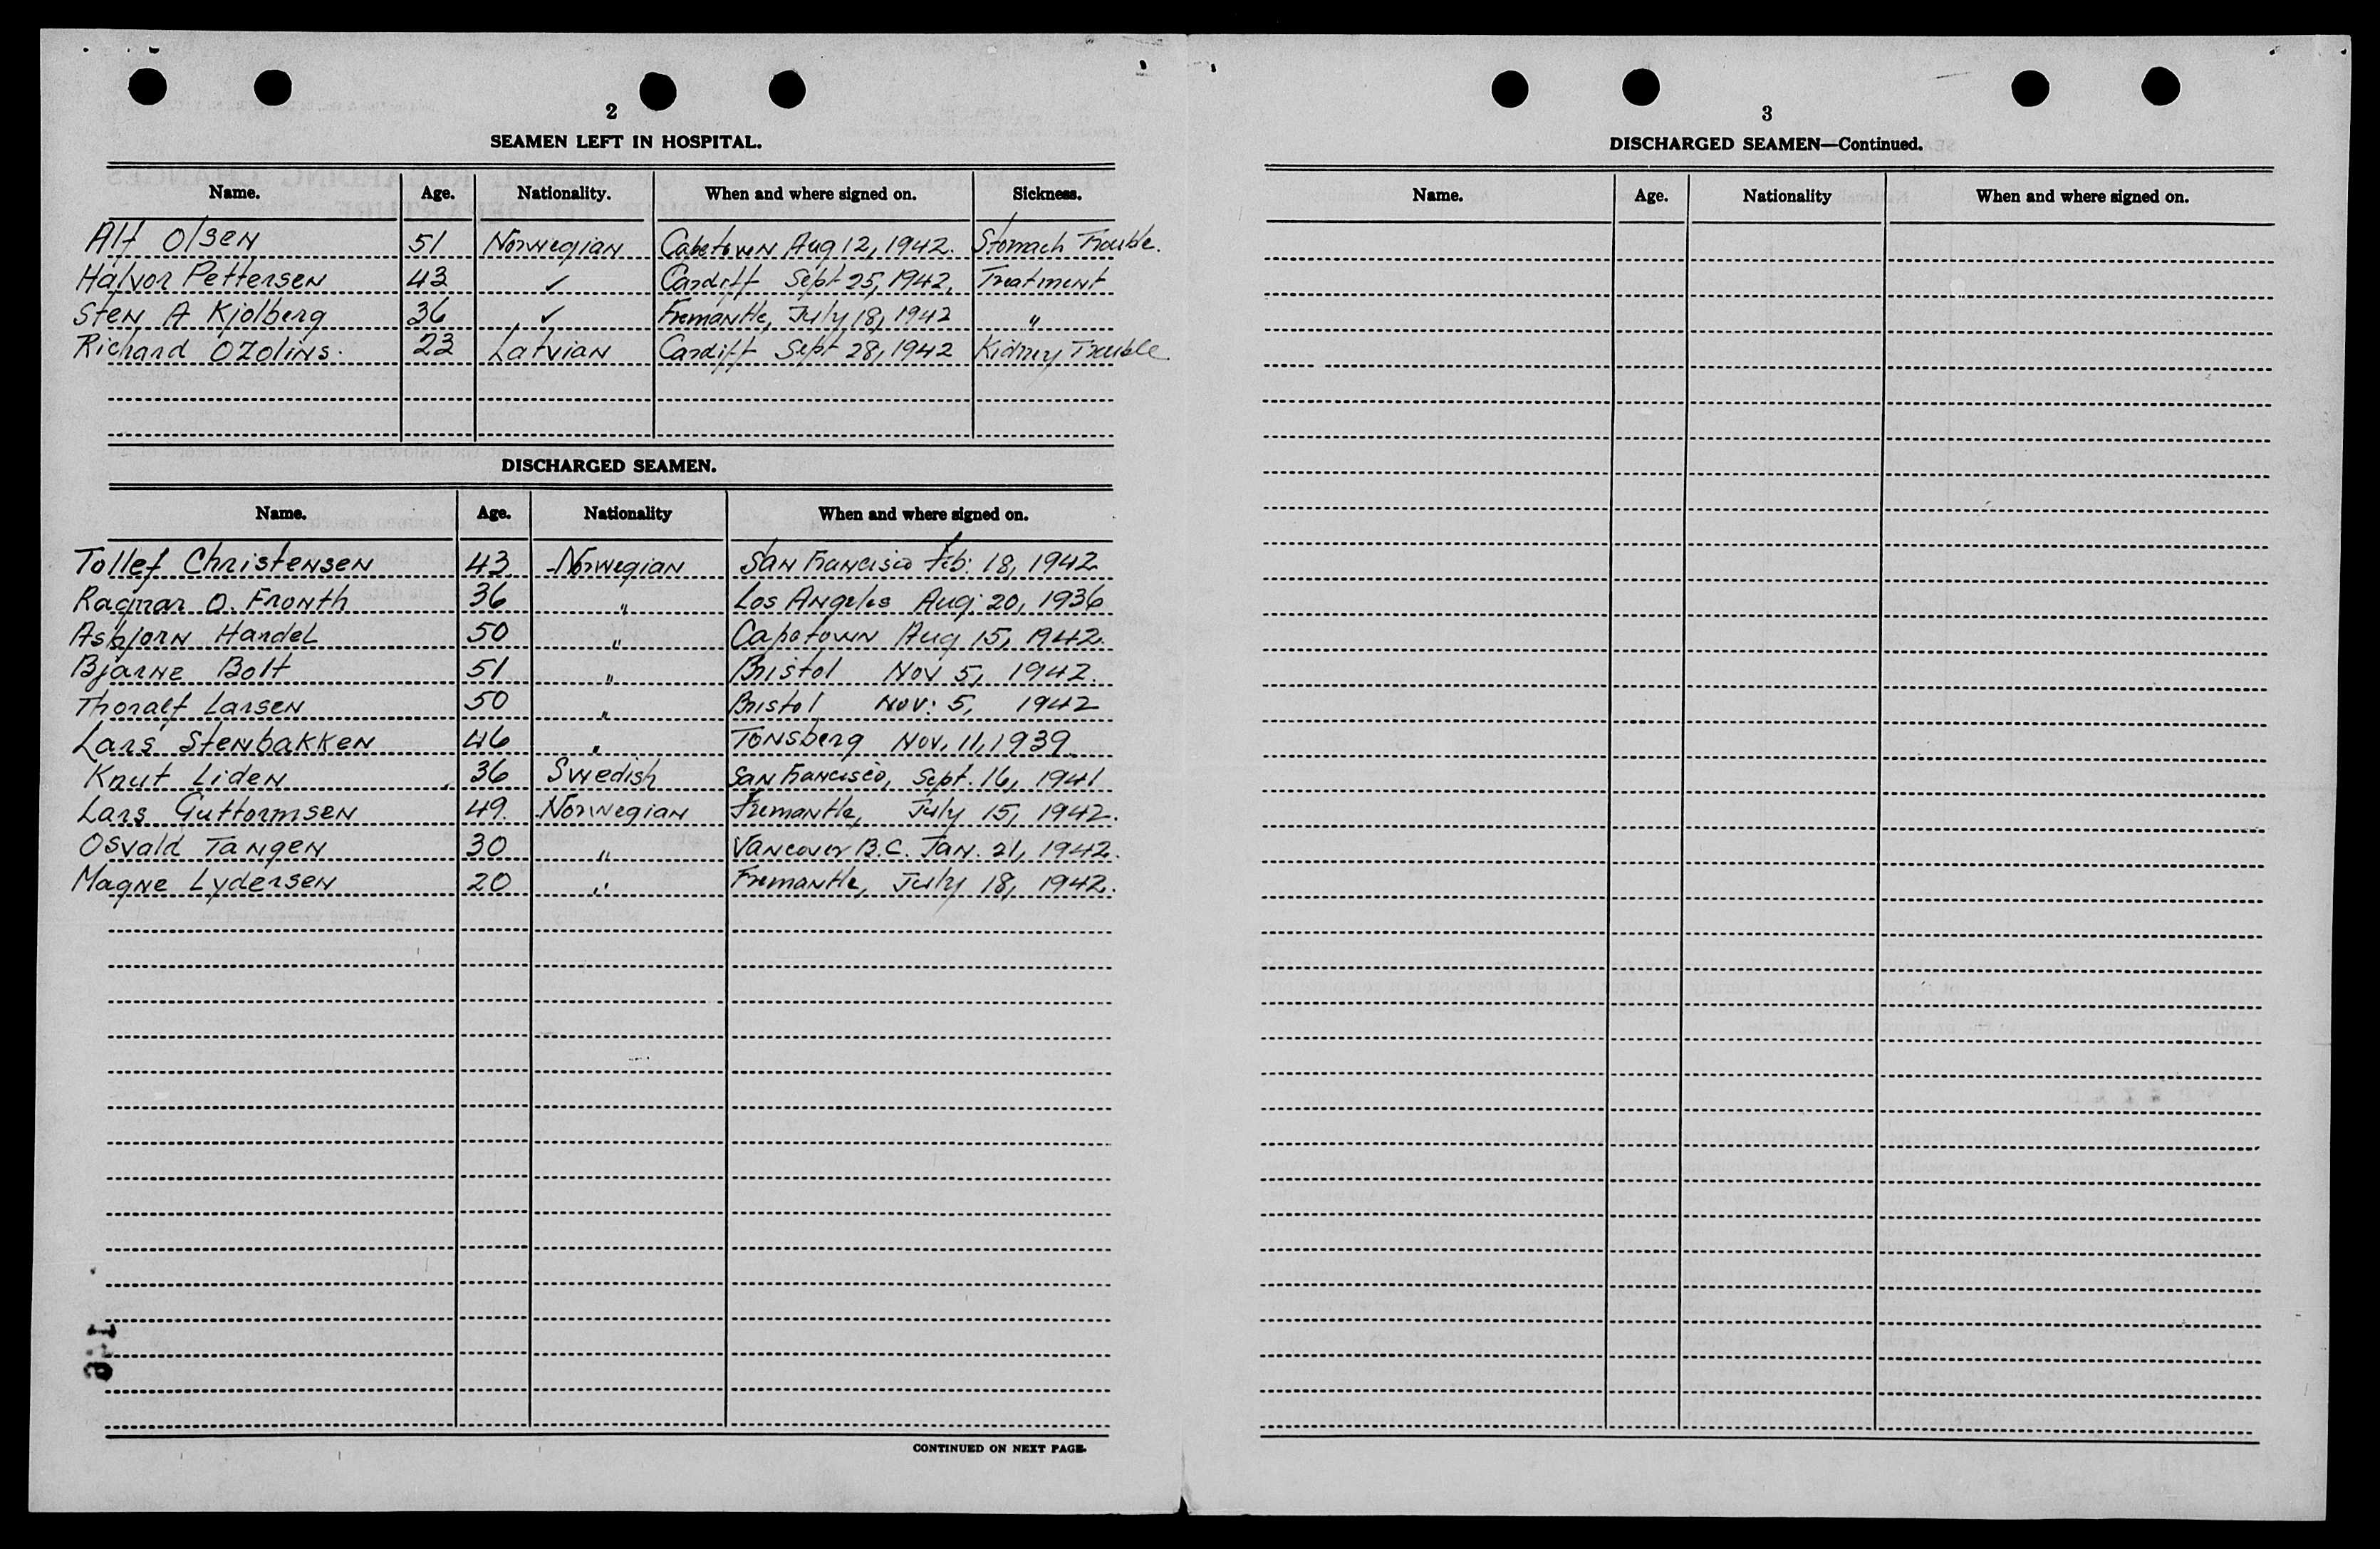 2
SEAMEN LEFT IN HOSPITAL.
Name. Age. Nationality. When and where signed on. Sickness.
Alf Olsen 51 Norwegian Capetown Aug 12, 1942. Stomach Trouble.
Halvor Pettersen 43 ✓ Cardiff Sept 25, 1942, Treatment
Sten A Kjolberg 36 ✓ Fremantle, July 18, 1942 "
Richard Ozolins. 23 Latvian Cardiff Sept 28, 1942 Kidney Trouble
DISCHARGED SEAMEN.
Name. Age. Nationality When and where signed on.
Tollef Christensen 43 Norwegian San Francisco Feb: 18, 1942
Ragnar O. Fronth 36 " Los Angeles Aug: 20, 1936
Asbjorn Handel 50 " Capetown Aug 15, 1942.
Bjarne Bolt 51 " Bristol Nov 5, 1942.
Thoralf Larsen 50 " Bristol Nov: 5, 1942
Lars Stenbakken 46 " Tonsberg Nov, 11, 1939
Knut Liden 36 Swedish San Francisco, Sept. 16, 1941
Lars Guttormsen 49. Norwegian Fremantle, July 15, 1942.
Osvald Tangen 30 " Vancover B.C. Jan. 21, 1942.
Magne Lydersen 20 " Fremantle, July 18, 1942.
CONTINUED ON NEXT PAGE.
3
DISCHARGED SEAMEN—Continued.
Name. Age. Nationality When and where signed on.